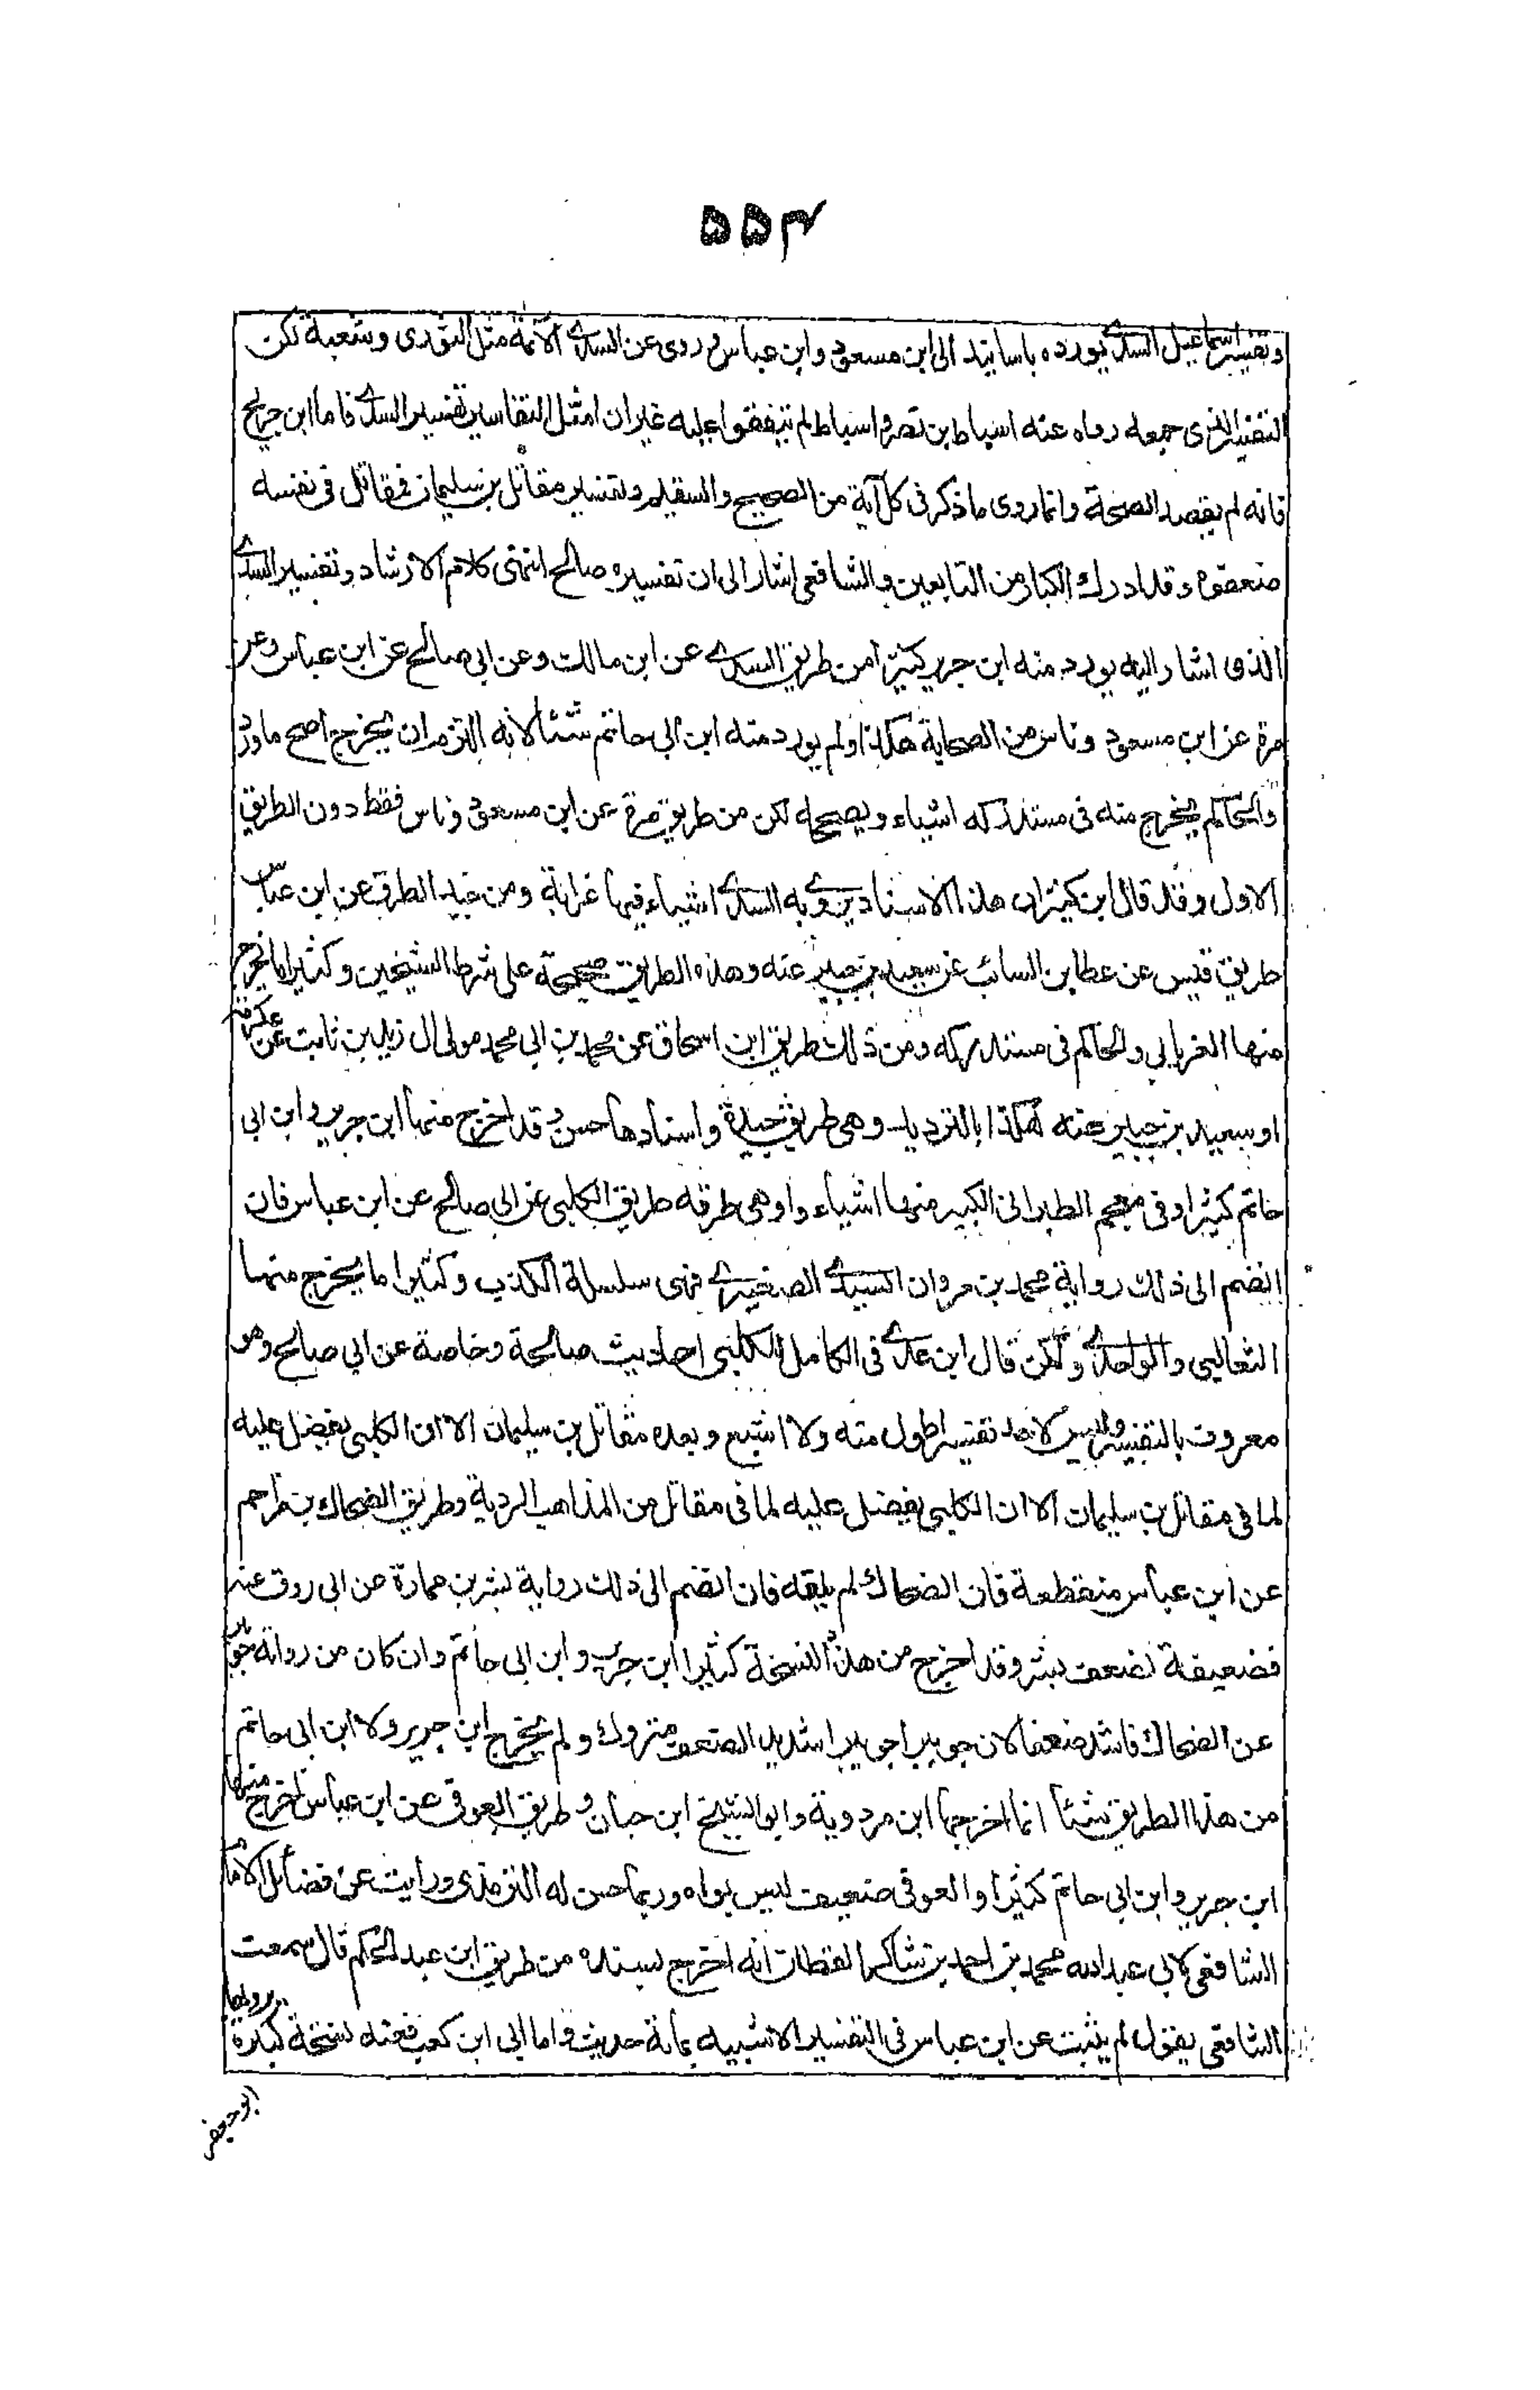 ۵۵۴
وتفسير اسماعيل السدي يورده باسانيد الى ابن مسعود وابن عباس وروى عن السدي الائمة مثل الثورى وشعبة لكن
التفسير الذى جمعه رواه عنه اسباط بن نصر واسباط لم يتفقوا عليه غير ان امثل التفاسير تفسير السدي فاما ابن جريج
فانه لم يقصد الصحة وانما روى ما ذكر فى كل آية من الصحيح والسقيم وتفسير مقاتل بن سليمان فمقاتل فى نفسه
ضعفوه وقد ادرك الكبار من التابعين والشافعى اشار الى ان تفسيره صالح انتهى كلام الارشاد وتفسير السدي
الذى اشار اليه يورد منه ابن جرير كثيرا من طريق السدي عن ابن مالك وعن ابى صالح عن ابن عباس وعن
مرة عن ابن مسعود وناس من الصحابة هكذا ولم يورد منه ابن ابى حاتم شئا لانه التزم ان يخرج اصح ما ورد
والحاكم يخرج منه فى مستدركه اشياء ويصححه لكن من طريق مرة عن ابن مسعود وناس فقط دون الطريق
الاول وقد قال ابن كثير ان هذا الاسناد يروي به السدي اشياء فيها غرابة ومن جيد الطرق عن ابن عباس
طريق قيس عن عطا بن السائب عن سعيد بن جبير عنه وهذه الطريق صحيحة على شرط الشيخين وكثيرا ما يخرج
منها الفريابي والحاكم فى مستدركه ومن ذلك طريق ابن اسحاق عن محمد بن ابى محمد مولى ال زيد بن ثابت عن عكرمة
او سعيد بن جبير عنه هكذا بالترديد وهى طريق جيدة واسنادها حسن وقد اخرج منها ابن جرير وابن ابى
حاتم كثيرا وفى معجم الطبرانى الكبير منها اشياء واوهى طرقه طريق الكلبى عن ابى صالح عن ابن عباس فان
انضم الى ذلك رواية محمد بن مروان السدي الصغير فهى سلسلة الكذب وكثيرا ما يخرج منها
الثعالبى والواحدي ولكن قال ابن عدي فى الكامل للكلبى احاديث صالحة وخاصة عن ابى صالح وهو
معروف بالتفسير وليس لاحد تفسير اطول منه ولا اشبع وبعده مقاتل بن سليمان الا ان الكلبى يفضل عليه
لما فى مقاتل بن سليمان الا ان الكلبى يفضل عليه لما فى مقاتل من المذاهب الردية وطريق الضحاك بن مزاحم
عن ابن عباس منقطعة فان الضحاك لم يلقه فان انضم الى ذلك رواية بشر بن عمارة عن ابى روق عنه
فضعيفة لضعف بشر وقد اخرج من هذه النسخة كثيرا ابن جرير وابن ابى حاتم وان كان من رواية جويبر
عن الضحاك فاشد ضعفا لان جويبرا شديد الضعف متروك ولم يخرج ابن جرير ولا ابن ابى حاتم
من هذا الطريق شئا انما اخرجها ابن مردوية وابو الشيخ ابن حبان وطريق العوفى عن ابن عباس اخرج منها
ابن جرير وابن ابى حاتم كثيرا والعوفى ضعيف ليس بواه وربما حسن له الترمذى ورايت عن فضائل الامام
الشافعى لابى عبد الله محمد بن احمد بن شاكر القطان انه اخرج بسنده من طريق ابن عبد الحكم قال سمعت
الشافعى يقول لم يثبت عن ابن عباس فى التفسير الا شبيه بمائة حديث واما ابى ابن كعب فعنه نسخة كبيرة يرويها
ابو جعفر